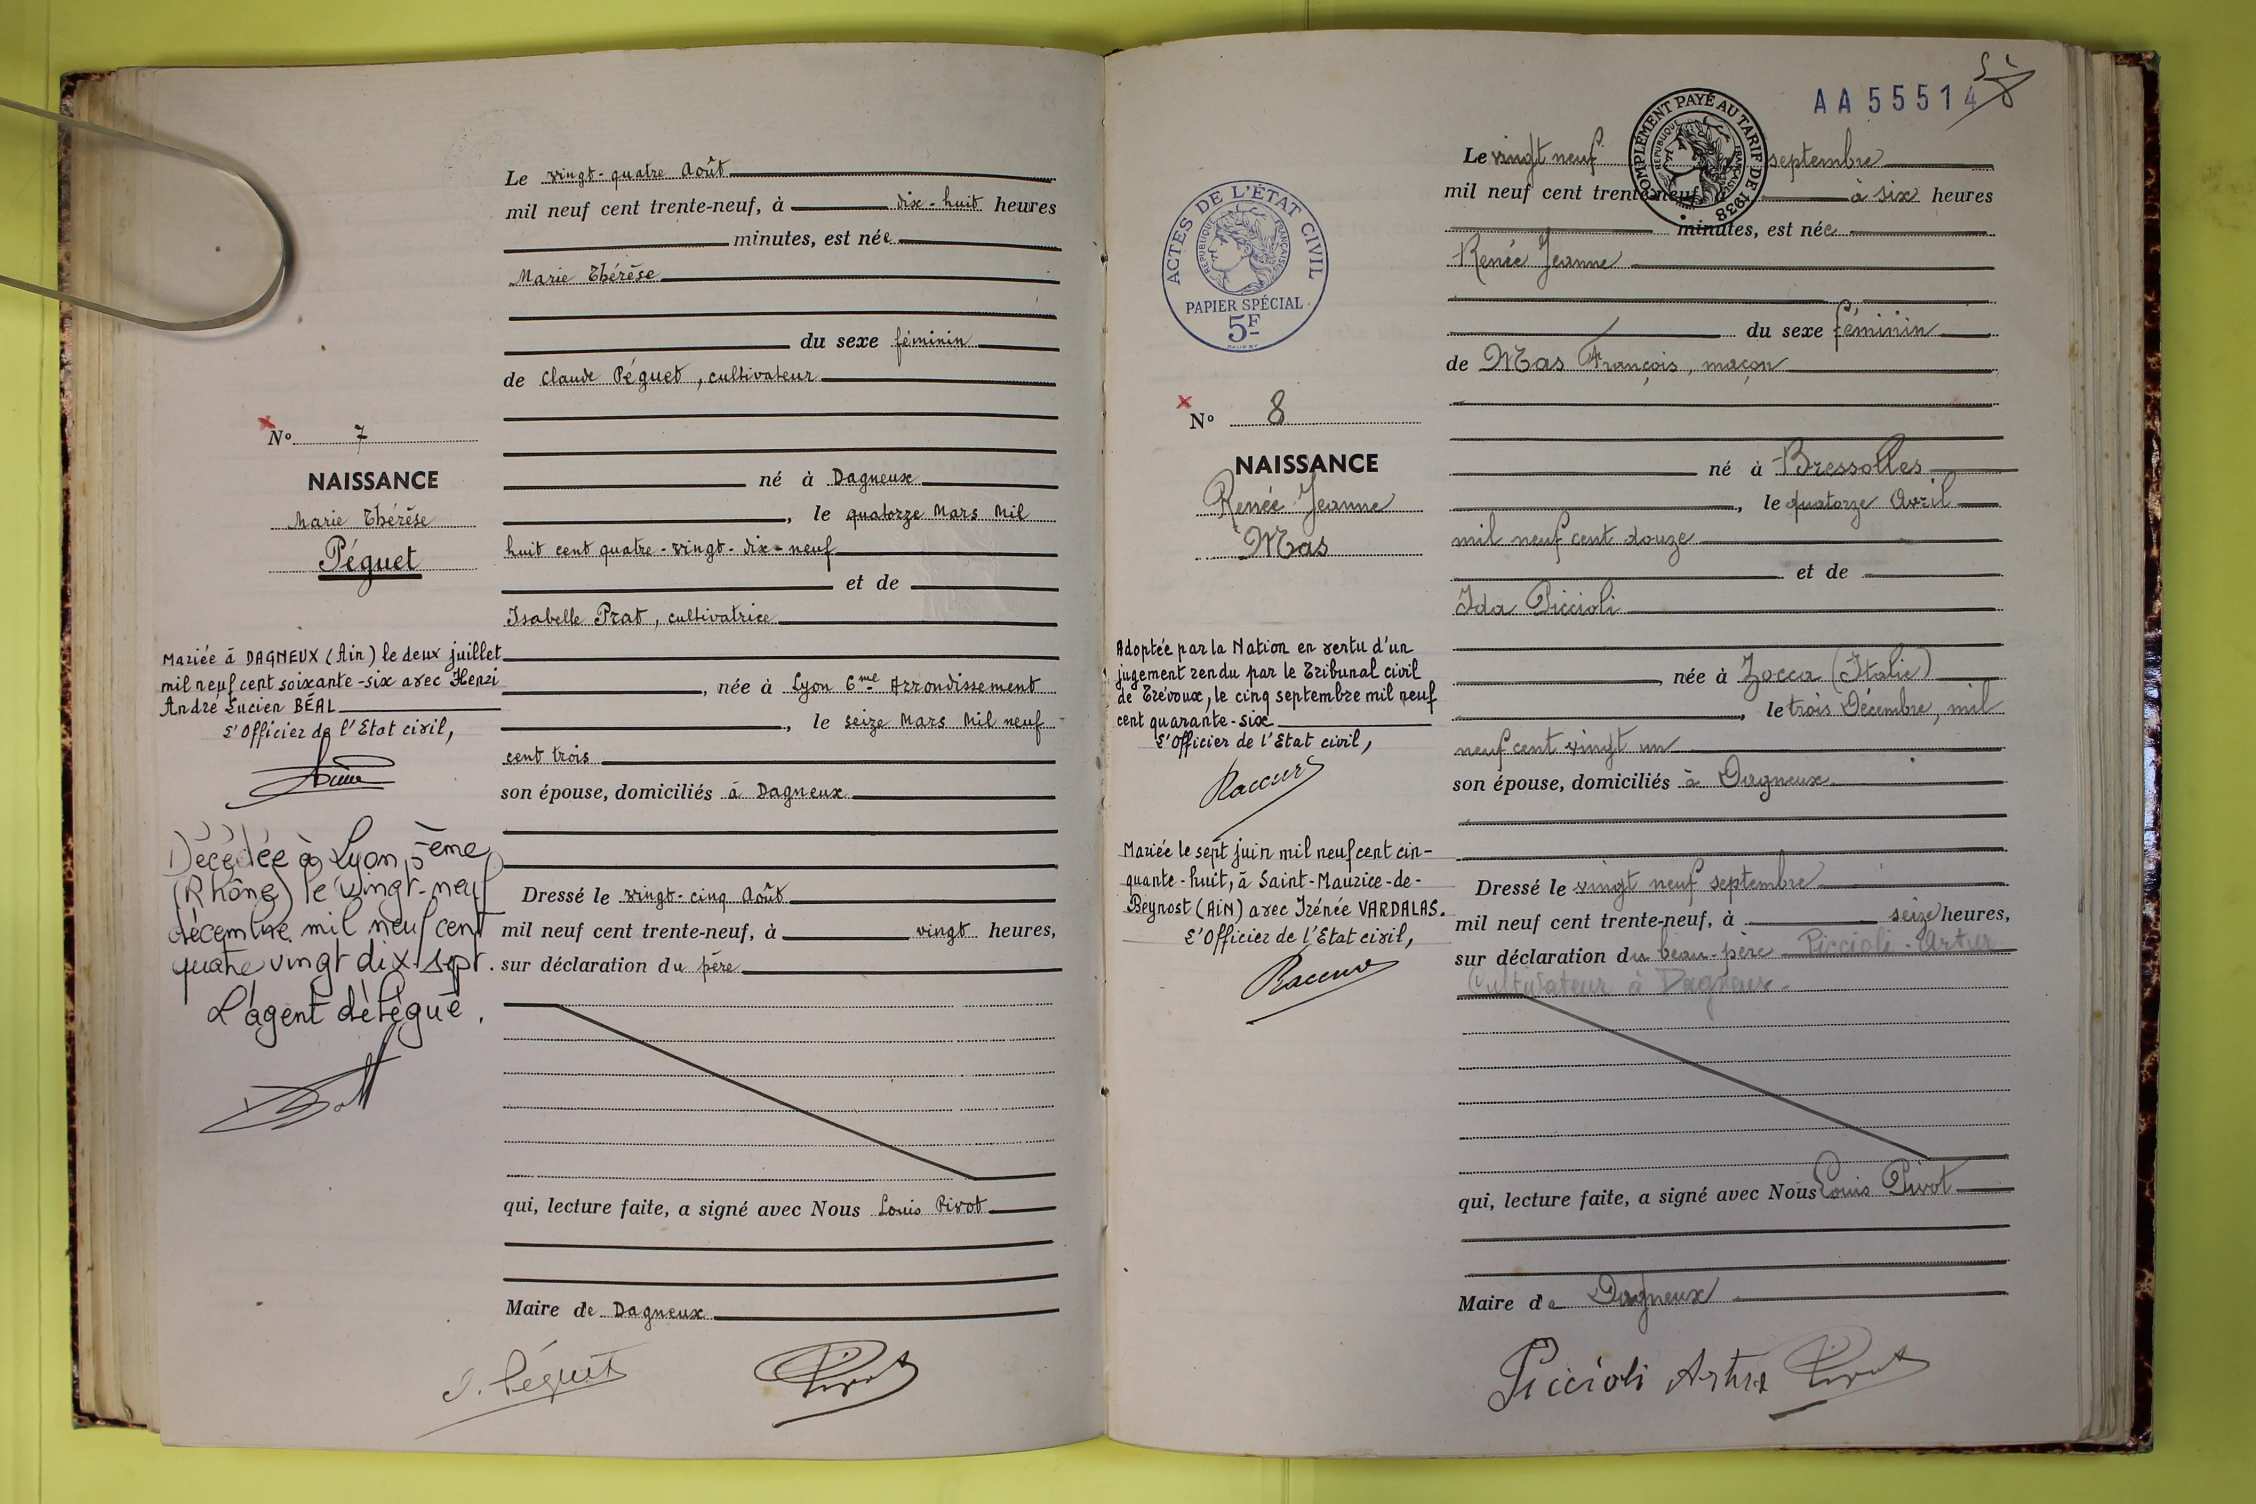 Le vingt-quatre Août
mil neuf cent trente-neuf, à dix-huit heures
minutes, est née
Marie Thérèse
du sexe féminin
de Claude Péguet, cultivateur
né à Dagneux
, le quatorze Mars Mil
huit cent quatre-vingt-dix-neuf
et de
Isabelle Prat, cultivatrice
, née à Lyon 6me Arrondissement
, le seize Mars Mil neuf
cent trois
son épouse, domiciliés à Dagneux
Dressé le vingt-cinq Août
mil neuf cent trente-neuf, à vingt heures,
sur déclaration du père
qui, lecture faite, a signé avec Nous Louis Pivot
Maire de Dagneux
Péguet
Pivot
No 7
NAISSANCE
Marie Thérèse
Péguet
Mariée à DAGNEUX (Ain) le deux juillet
mil neuf cent soixante-six avec Henri
André Lucien BÉAL
L'Officier de l'Etat civil,
Décédée à Lyon, 5ème
(Rhône) le vingt-neuf
décembre mil neuf cent
quatre vingt dix-sept.
L'agent délégué.
AA 55514
COMPLÉMENT PAYÉ AU TARIF DE 1938
RÉPUBLIQUE FRANÇAISE
ACTES DE L'ÉTAT CIVIL
RÉPUBLIQUE FRANÇAISE
PAPIER SPÉCIAL
5F
No 8
NAISSANCE
Renée Jeanne
Mas
Adoptée par la Nation en vertu d'un
jugement rendu par le Tribunal civil
de Trévoux, le cinq septembre mil neuf
cent quarante-six
L'Officier de l'Etat civil,
Mariée le sept juin mil neuf cent cin-
quante-huit, à Saint-Maurice-de-
Beynost (AIN) avec Irénée VARDALAS.
L'Officier de l'Etat civil,
Le vingt neuf septembre
mil neuf cent trente-neuf, à six heures
minutes, est née
Renée Jeanne
du sexe féminin
de Mas François, maçon
né à Bressolles
, le quatorze Avril
mil neuf cent douze
et de
Ida Piccioli
, née à Zocca (Italie)
, le trois Décembre, mil
neuf cent vingt un
son épouse, domiciliés à Dagneux
Dressé le vingt neuf septembre
mil neuf cent trente-neuf, à seize heures,
sur déclaration du beau-père Piccioli-Artur
Cultivateur à Dagneux.
qui, lecture faite, a signé avec Nous Louis Pivot
Maire de Dagneux
Piccioli Pivot